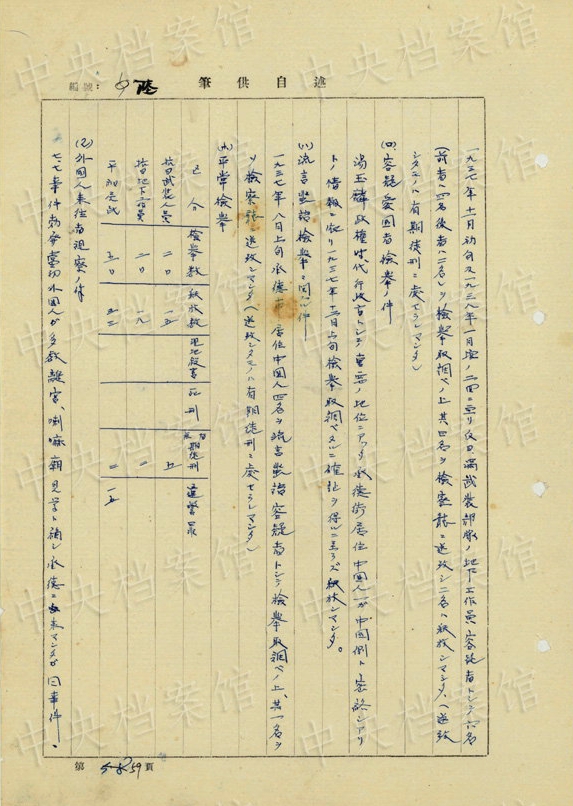 述自供筆
編號:
一九三七年十一月初旬及一九三八年一月頃ノ二回ニ亘リ反日満武装部隊ノ地下工作員容疑者トシテ六名
(前者ハ四名後者ハ二名)ヲ検挙取調ベノ上其四名ヲ検察庁ニ送致シ二名ハ釈放シマシタ、(送致
シタモノハ有期徒刑ニ処セラレマシタ)
(ロ)容疑愛国者検挙ノ件
湯玉麟政権時代行政官トシテ重要ノ地位ニアッタ承徳街居住中国人一ガ中国側ト連絡シアリ
トノ情報ニ依リ一九三七年十二月上旬検挙取調ベタルモ確証ヲ得ルニ至ラズ釈放シマシタ。
(ハ)流言蜚語検挙ニ関スル件
一九三七年八月上旬承徳市居住中国人四名ヲ流言蜚語容疑者トシテ検挙取調ベノ上、其一名ヲ
検察庁ニ送致シマシタ(送致シタモノハ有期徒刑ニ処セラレマシタ)
平常検挙
区分 検挙数 釈放数 現地殺害 死刑 有期徒刑
抗日武装人員 二〇 一五 五
抗日地下人員 二〇 一九 一
平和居民
(2)外国人来往者視察ノ件
七七事件勃発当初外国人ガ多数離宮、喇嘛廟見学ト称シ承徳ニ来マシタガ同事件・
第 59 頁
中央档案馆